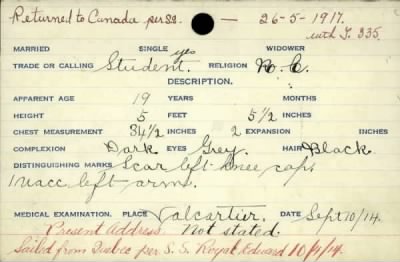 Returned to Canada per SS. - 26-5-1917.
with T. 335.
MARRIED SINGLE yes WIDOWER
TRADE OR CALLING Student. RELIGION R. C.
DESCRIPTION.
APPARENT AGE 19 YEARS MONTHS
HEIGHT 5 FEET 5 1/2 INCHES
CHEST MEASUREMENT 34 1/2 INCHES 2 EXPANSION INCHES
COMPLEXION Dark EYES Grey. HAIR Black
DISTINGUISHING MARKS Scar left knee cap.
1 vacc left arm.
MEDICAL EXAMINATION. PLACE Valcartier. DATE Sept 10/14.
Present Address Not stated.
Sailed from Quebec per S. S. Royal Edward